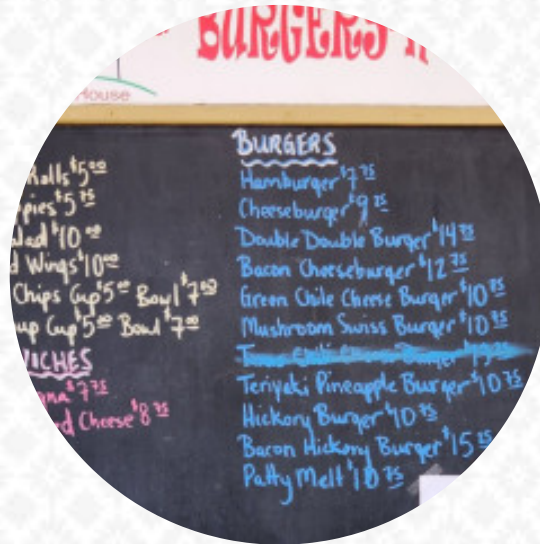 BURGERS
House
Rolls $5⁰⁰
$5⁷⁵
$10⁰⁰
Wings $10⁰⁰
Chips Cup $5⁰⁰ Bowl $7⁰⁰
Cup $5⁰⁰ Bowl $7⁰⁰
$7⁷⁵
Cheese $8⁷⁵
BURGERS
Hamburger $7⁷⁵
Cheeseburger $9²⁵
Double Double Burger $14⁷⁵
Bacon Cheeseburger $12⁷⁵
Green Chile Cheese Burger $10⁷⁵
Mushroom Swiss Burger $10⁷⁵
Teriyaki Pineapple Burger $10⁷⁵
Hickory Burger $10⁷⁵
Bacon Hickory Burger $15²⁵
Patty Melt $10⁷⁵